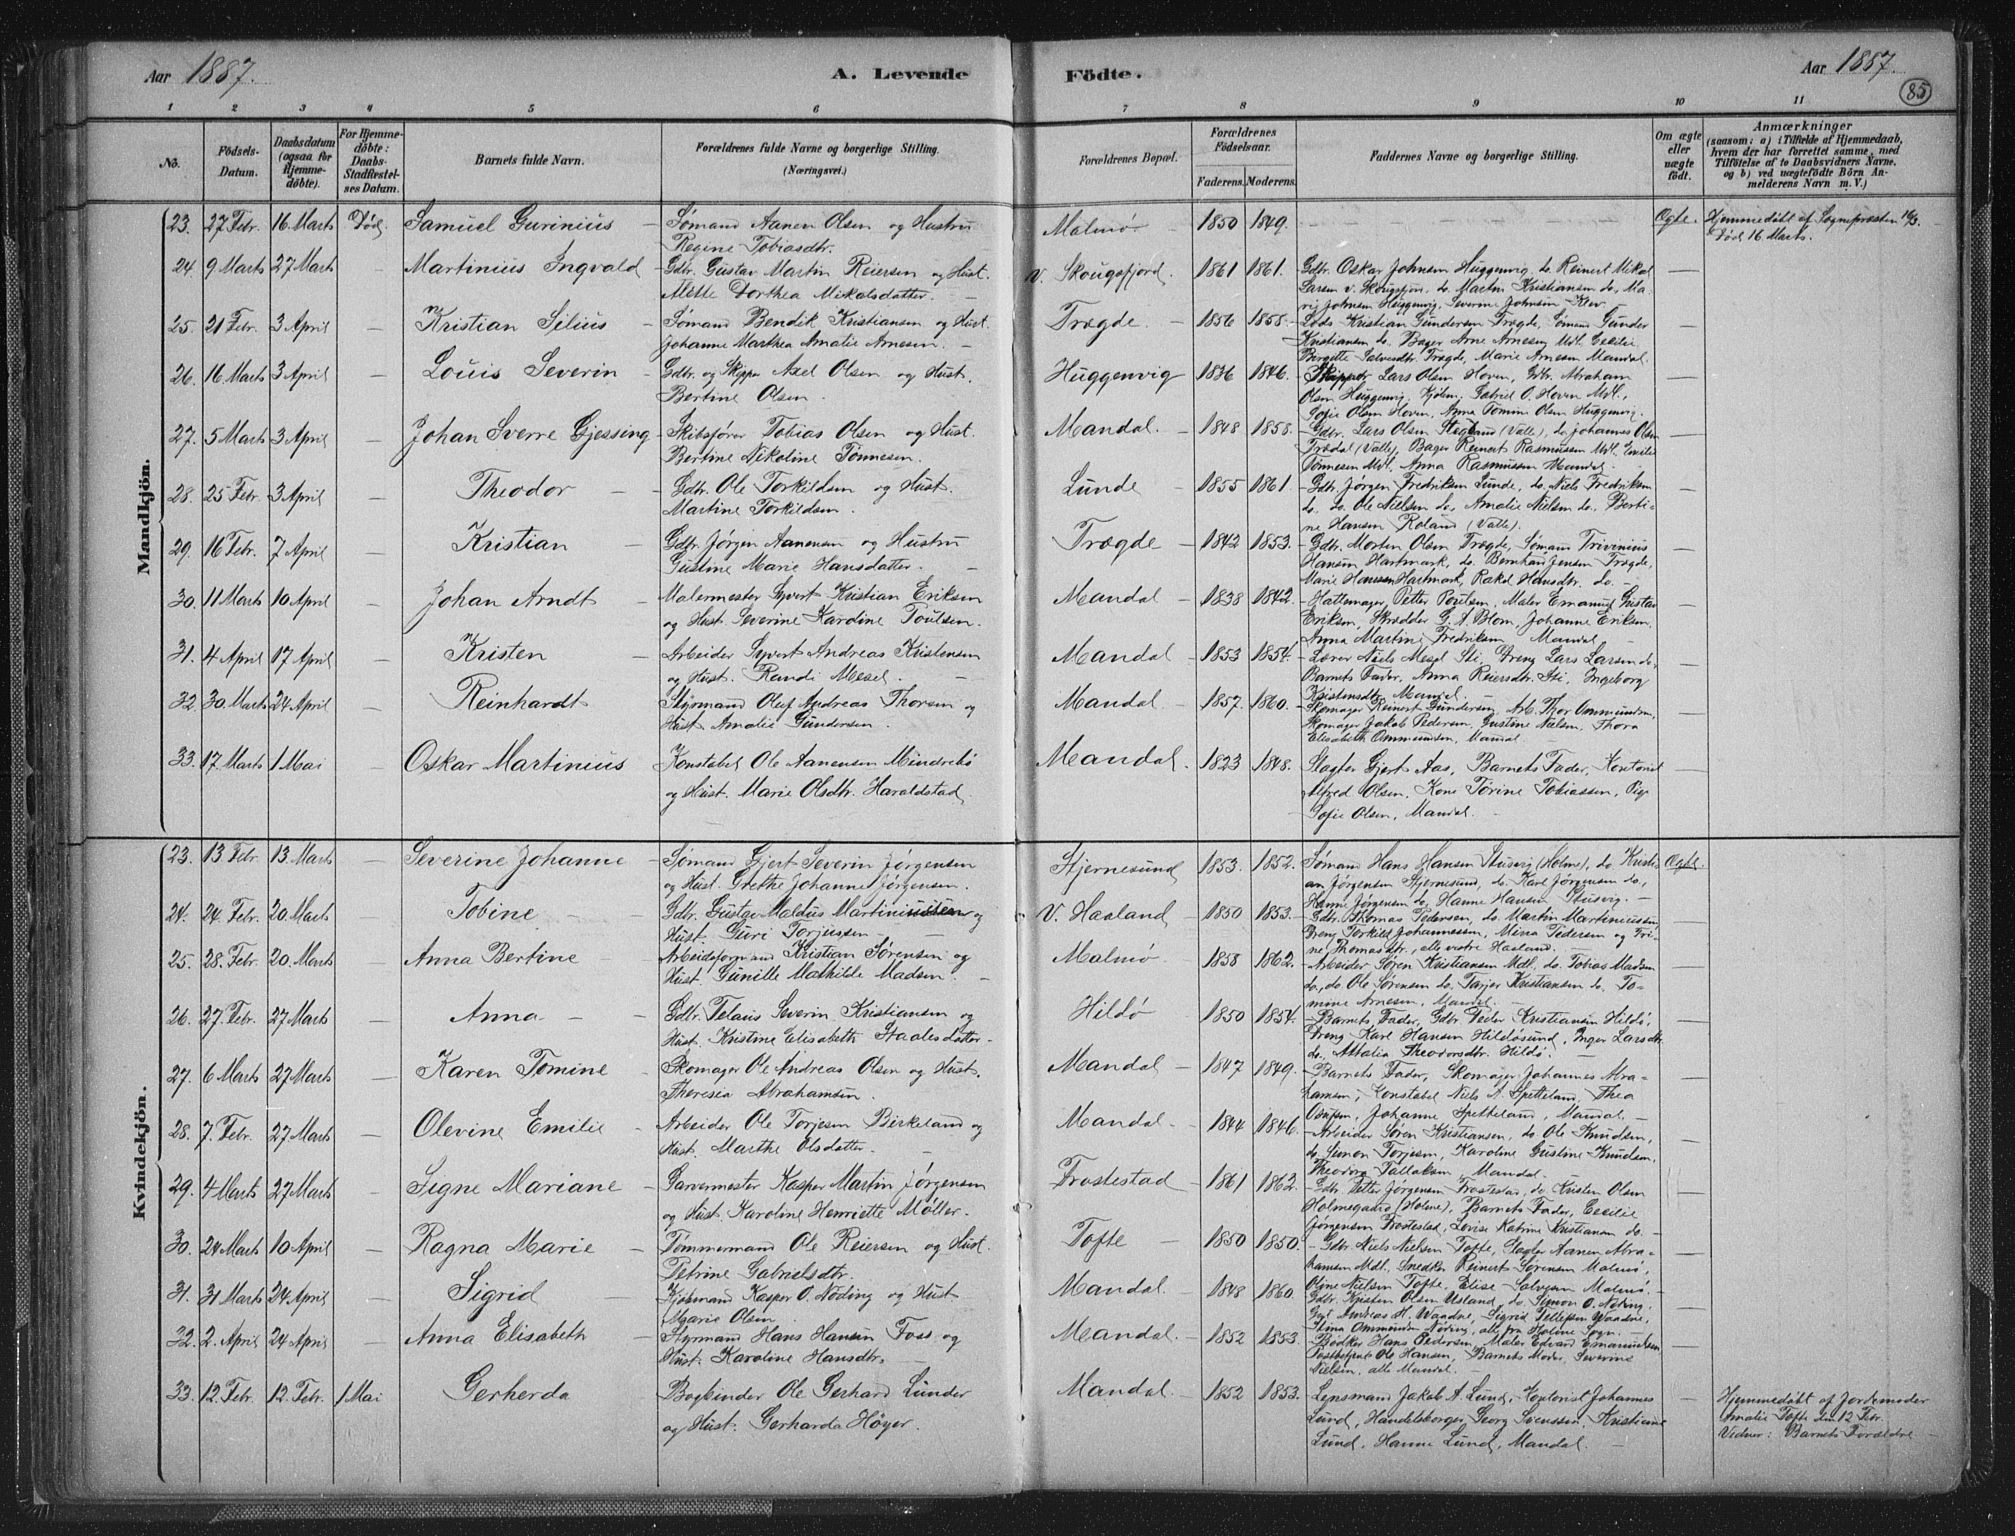 Aar 1887. A. Levende Födte. Aar 1887. 85
1 2 3 4 5 6 7 8 9 10 11
No. Födsels-Datum. Daabsdatum (ogsaa for Hjemmedöbte). For Hjemmedöbte: Daabs-Stadfæstelses Datum. Barnets fulde Navn. Forældrenes fulde Navne og borgerlige Stilling. (Næringsvei.) Forældrenes Bopæl. Forældrenes Födselsaar. Faderens. Moderens. Faddernes Navne og borgerlige Stilling. Om ægte eller uægte födt. Anmærkninger (saasom: a) i Tilfælde af Hjemmedaab, hvem der har forrettet samme, med Tilföielse af to Daabsvidners Navne, og b) ved uægtefödte Börn Anmelderens Navn m. V.)
Mandkjön.
23. 27 Febr. 16 Marts Död. Samuel Gurinius Sømand Aanen Olsen og Hustru Malmø 1850 1849. Ægte. Hjemmedöbt af Sognepræsten 16/3.
Regine Tobiasdtr. Död 16 Marts.
24. 9 Marts 27 Marts Martinius Ingvald Gdbr. Gustav Martin Reiersen og Hust. v. Skougsfjord. 1861 1861. Gdbr. Oskar Johnsen Huggenvig, do. Reinert Mikal
Alette Dorthea Mikalsdatter. Larsen v. Skougsfjord, do. Martin Kristiansen do., Ma-
rie Johnsen Huggenvig, Severine Johnsen Klev.
25. 21 Febr. 3 April Kristian Silius Sømand Bendik Kristiansen og Hust. Trægde 1856 1858. Lods Kristian Gundersen Trægde, Sømand Gunder
Johanne Marthea Amalie Arnesen. Kristiansen do. Bager Arne Arnesen Mdl. Cecilie
Bergitte Salvesdtr. Trægde, Marie Arnesen Mandal.
26. 16 Marts 3 April Louis Severin Gdbr. og Skipper Axel Olsen og Hust. Huggenvig 1836 1846. Skipper Lars Olsen Hoven, Gdbr. Abraham
Bertine Olsen. Olsen Huggenvig, Gabriel O. Hoven Mdl.,
Sofie Olsen Hoven, Anna Tomine Olsen Huggenvig.
27. 5 Marts 3 April Johan Sverre Gjessing Skibsfører Tobias Olsen og Hust. Mandal. 1848 1858. Gdbr. Lars Olsen Stegland (Valle), do. Johannes Olsen
Bertine Nikoline Tønnesen. (Valle), Bager Reinert Rasmussen Mdl. Emilie
Tønnesen Mdl., Anna Rasmussen Mandal.
28. 25 Febr. 3 April Theodor Gdbr. Ole Torkildsen og Hust. Lunde 1855 1861. Gdbr. Jørgen Fredriksen Lunde, do. Niels Fredriksen
Martine Torkildsen. do. do. Ole Nielsen do., Amalie Nielsen do. Berti-
ne Hansen Roland (Valle).
29. 16 Febr. 7 April Kristian Gdbr. Jørgen Aanensen og Hustru Trægde 1842 1853. Gdbr. Morten Olsen Trægde, Sømand Trivinius
Gustine Marie Hansdatter. Hansen Hartmark, do. Bernhard Jensen Trægde,
Marie Hansen Hartmark, Rakel Hansdtr. do.
30. 11 Marts 10 April Johan Arndt Malermester Syvert Kristian Eriksen Mandal 1838 1842. Hattemager Petter Poulsen, Maler Emanuel Gustav
og Hust. Severine Karoline Poulsen. Eriksen, Skrædder G. A. Blom, Johanne Eriksen,
Anna Martine Fredriksen Mandal.
31. 4 April 17 April Kristen Arbeider Syvert Andreas Kristensen Mandal 1853 1854. Lærer Niels Mesel Sti, Dreng Lars Larsen do.,
og Hust. Randi Mesel. Barnets Fader, Anna Reiersdtr. Sti, Ingeborg
Kristensdtr. Mandal.
32. 30 Marts 24 April Reinhardt Styrmand Oluf Andreas Thorsen og Mandal 1857. 1860. Skomager Reinert Gundersen, Arb. Thor Ommundsen,
Hust. Amalie Gundersen. Skomager Jakob Pedersen, Gustine Nielsen, Thora
Elisabeth Ommundsen, Mandal.
33. 17 Marts 1 Mai Oskar Martinius Konstabel Ole Aanensen Mindrebö Mandal. 1823 1848. Slagter Gjert Aas, Barnets Fader, Kontorist
og Hust. Marie Olsdtr. Haraldstad. Alfred Olsen, Kone Tørine Tobiassen, Pige
Sofie Olsen, Mandal.
Kvindekjön.
23. 13 Febr. 13 Marts Severine Johanne Sømand Gjert Severin Jørgensen Stjernesund 1853. 1852. Sømand Hans Hansen Stusvig (Holme), do. Kristi- Ægte.
og Hust. Grethe Johanne Jørgensen. an Jørgensen Stjernesund, do. Karl Jørgensen do.,
Hanne Jørgensen do., Hanne Hansen Stusvig.
24. 24 Febr. 20 Marts Tobine Gdbr. Gustav Maldus Martiniussen og V. Haaland 1850 1853. Gdbr. Thomas Pedersen, do. Martin Martiniussen,
Hust. Guri Torjussen Dreng Torkild Johannessen, Mina Pedersen og Tri-
ne Thomasdtr., alle vestre Haaland.
25. 28 Febr. 20 Marts Anna Bertine Arbeidsformand Kristian Sørensen og Malmø 1858 1862. Arbeider Søren Kristiansen Mdl. do. Tobias Madsen
Hust. Gunille Mathilde Madsen. do., do Ole Sørensen do. Tarjer Kristiansen do. To-
mine Arnesen, Mandal.
26. 27 Febr. 27 Marts Anna Gdbr. Telaus Severin Kristiansen og Hildö 1850 1854. Barnets Fader, Gdbr. Peder Kristiansen Hildö,
Hust. Kristine Elisabeth Staalesdatter. Dreng Karl Hansen Hildösund, Inger Larsdtr.
do., Attalia Theodorsdtr. Hildö.
27. 6 Marts 27 Marts Karen Tomine Skomager Ole Andreas Olsen og Hust. Mandal 1847 1849. Barnets Fader, Skomager Johannes Abra-
Theresia Abrahamsen. hamsen, Konstabel Niels A. Spetteland, Thea
Johanne Spetteland, Mandal.
28. 7. Febr. 27 Marts Olevine Emilie Arbeider Ole Torjesen Birkeland og Mandal. 1844 1846. Arbeider Søren Kristiansen, do. Ole Knudsen,
Hust. Marthe Olsdatter. do. Simon Torjesen, Karoline Gustine Knudsen,
Theodora Tallaksen, Mandal.
29. 4 Marts 27 Marts Signe Mariane Garvermester Kasper Martin Jørgensen Frostestad 1861 1862. Gdbr. Petter Jørgensen Frostestad, do. Kristen Olsen
og Hust. Karoline Henriette Møller. Holmegaard (Holme), Barnets Fader, Cecilie
Jørgensen Frostestad, Lovise Katrine Kristiansen do.
30. 24 Marts 10 April Ragna Marie Tømmermand Ole Reiersen og Hust. Tofte 1850 1850. Gdbr. Niels Nielsen Tofte, Slagter Aanen Abra-
Petrine Gabrielsdtr. hamsen Mdl., Snedker Reinert Sørensen Malmø,
Oline Nielsen Tofte, Elise Salvesen Malmø.
31. 31 Marts 24 April Sigrid Kjøbmand Kasper O. Nöding og Hust Mandal. 1848 1860. Gdbr. Kristen Olsen Usland, do. Simon O. Nöding,
Marie Olsen Andreas H. Waadne, Sigrid Tellefsen Waadne,
Stina Ommundsen Nöding, alle fra Holme Sogn.
32. 2. April 24 April Anna Elisabeth Styrmand Hans Hansen Foss og Mandal. 1852 1853. Bødker Hans Pedersen, Maler Edvard Emanuelsen,
Hust. Karoline Hansdtr. Ole Hansen, Barnets Moder, Severine
Nielsen, alle Mandal.
33. 12. Febr. 12. Febr. 1 Mai Gerherda Bogbinder Ole Gerhard Lunder Mandal. 1852 1853. Lensmand Jakob A. Lund, Kontorist Johannes Hjemmedöbt af Jordemoder
og Hust. Gerharda Høyer. Lund, Handelsborger Georg Svenssen, Kristiane Amalie Tofte den 12 Febr.
Lund, Hanne Lund, Mandal. Vidner: Barnets Forældre